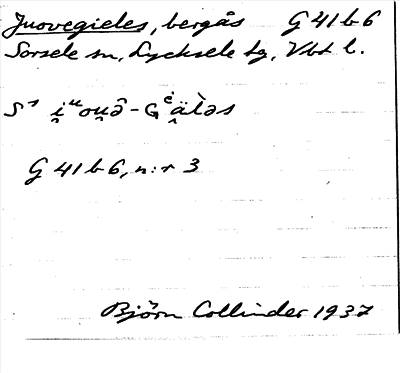 Juovegieles, bergås G 41 b 6
Sorsele sn, Lycksele lg, Vbt l.
G 41 b 6, n:r 3
Björn Collinder 1937